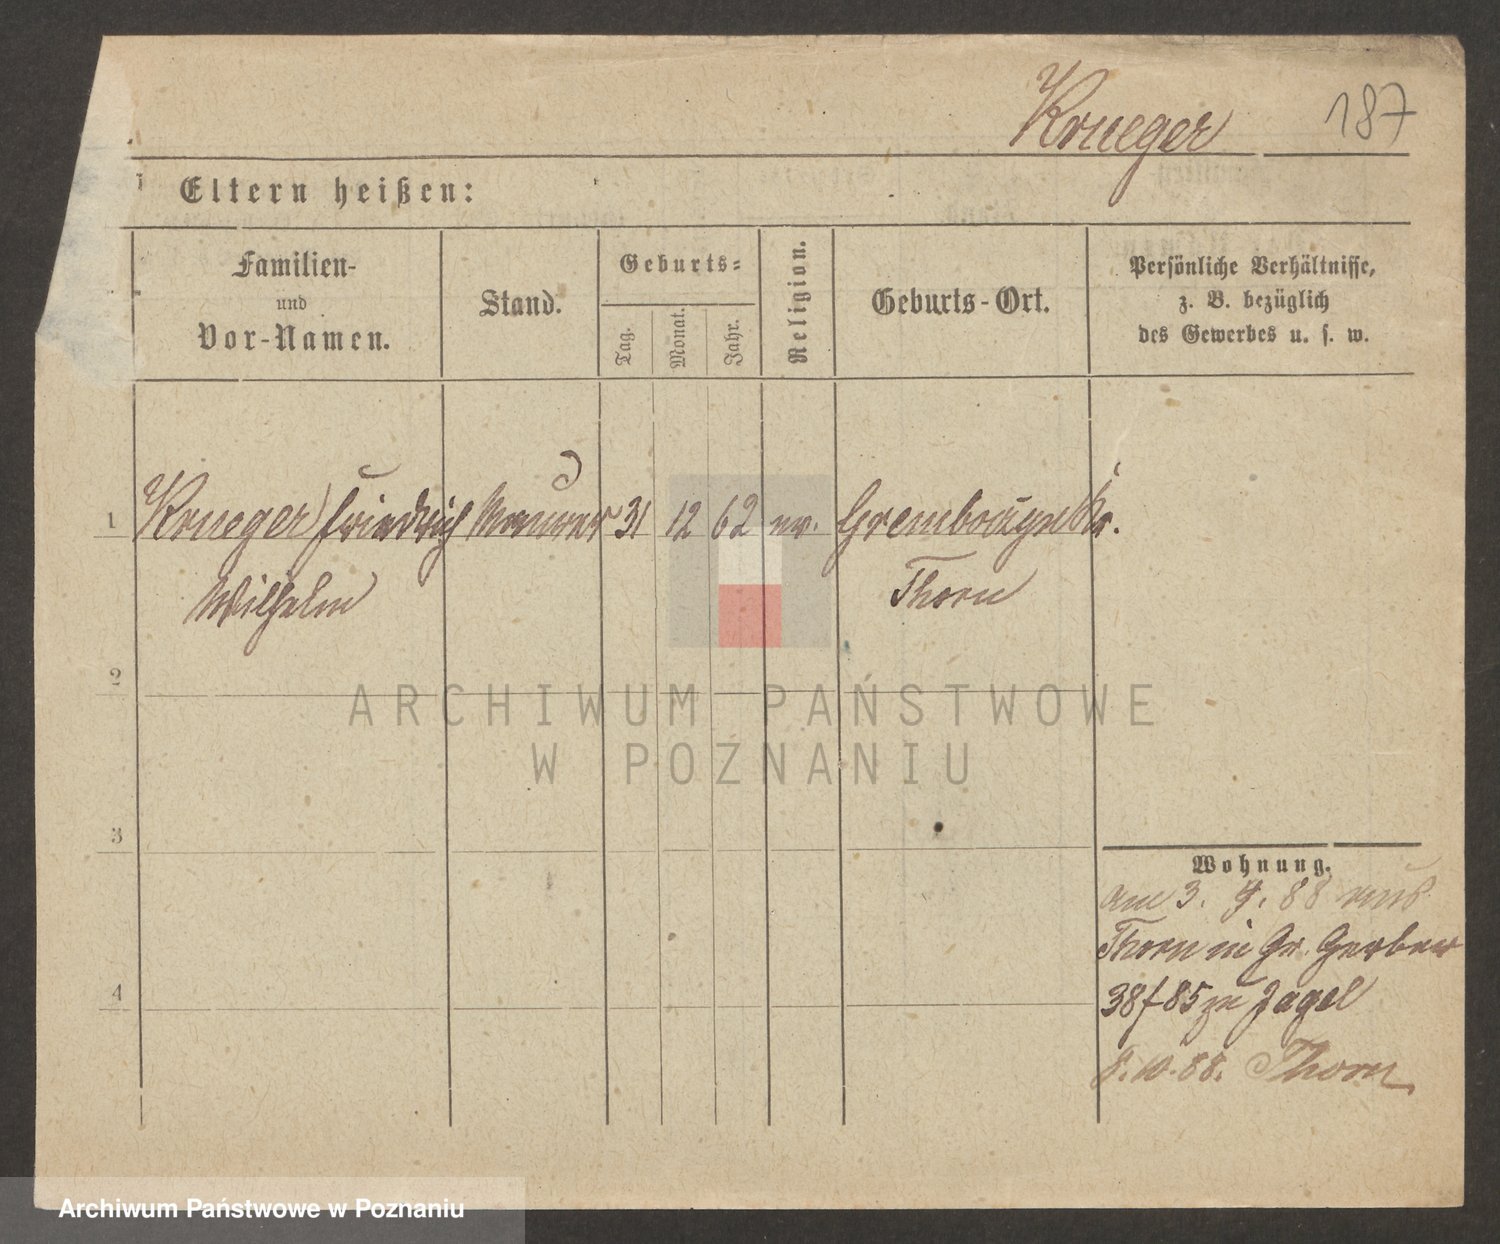 Krueger 187
Eltern heißen:
Familien-
und
Vor-Namen.
Stand.
Geburts-
Tag.
Monat.
Jahr.
Religion.
Geburts-Ort.
Persönliche Verhältnisse,
z. B. bezüglich
des Gewerbes u. s. w.
1 Krueger Friedrich Maurer 31 12 62 ev. Kr.
Wilhelm Thorn
2
ARCHIWUM PAŃSTWOWE
W POZNANIU
3
Wohnung.
am 3. 4. 88 aus
Thorn in Gr. Gerber
38 f 85 zu Jagel
4
8. 10. 88. Thorn
Archiwum Państwowe w Poznaniu